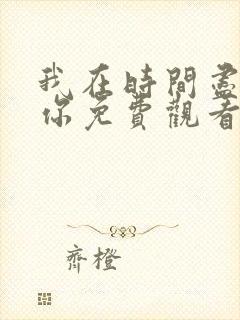 我在時間盡
你免費觀看
齊橙